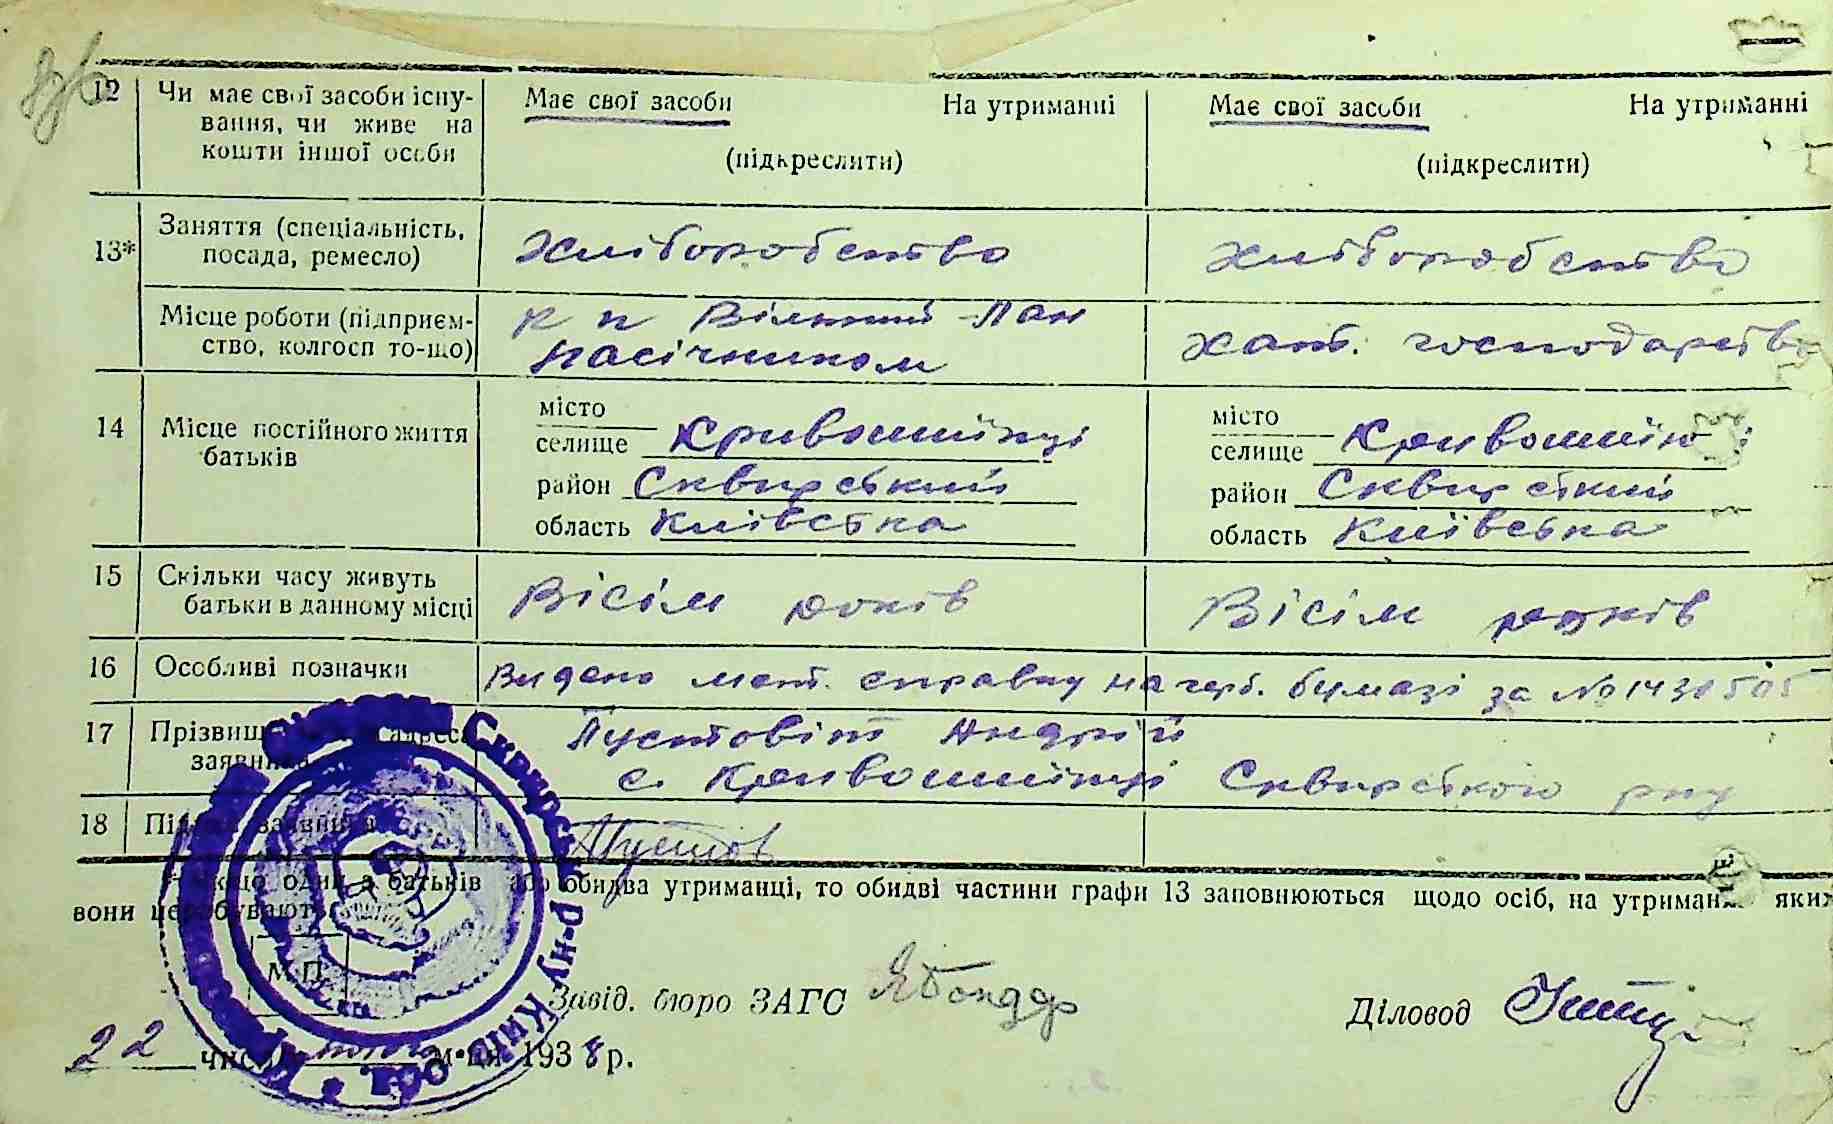 12 Чи має свої засоби існу- Має свої засоби На утриманні Має свої засоби На утриманні
вання, чи живе на
кошти іншої особи (підкреслити) (підкреслити)
13* Заняття (спеціальність, посада, ремесло) Хліборобство Хліборобство
Місце роботи (підприєм- к п Вільний Лан
ство, колгосп то-що) пасічником хат. господарство
14 Місце постійного життя батьків
місто місто
селище Кривошиїнці селище Кривошиїнці
район Сквирський район Сквирський
область Київська область Київська
15 Скільки часу живуть
батьки в данному місці Вісім років Вісім років
16 Особливі позначки Видано мет. справку на герб. бумазі за № 1431505
17 Прізвищ адреса Пустовіт Андрій
заявника с. Кривошиїнці Сквирського рну
18 Підпис заявника Пустов
якщо один з батьків або обидва утриманці, то обидві частини графи 13 заповнюються щодо осіб, на утриман яких
вони перебувають
М. П.
Завід. бюро ЗАГС ЯБондар Діловод
22 числа м-ця 1938 р.
Сквирськ р-ну Київ обл.